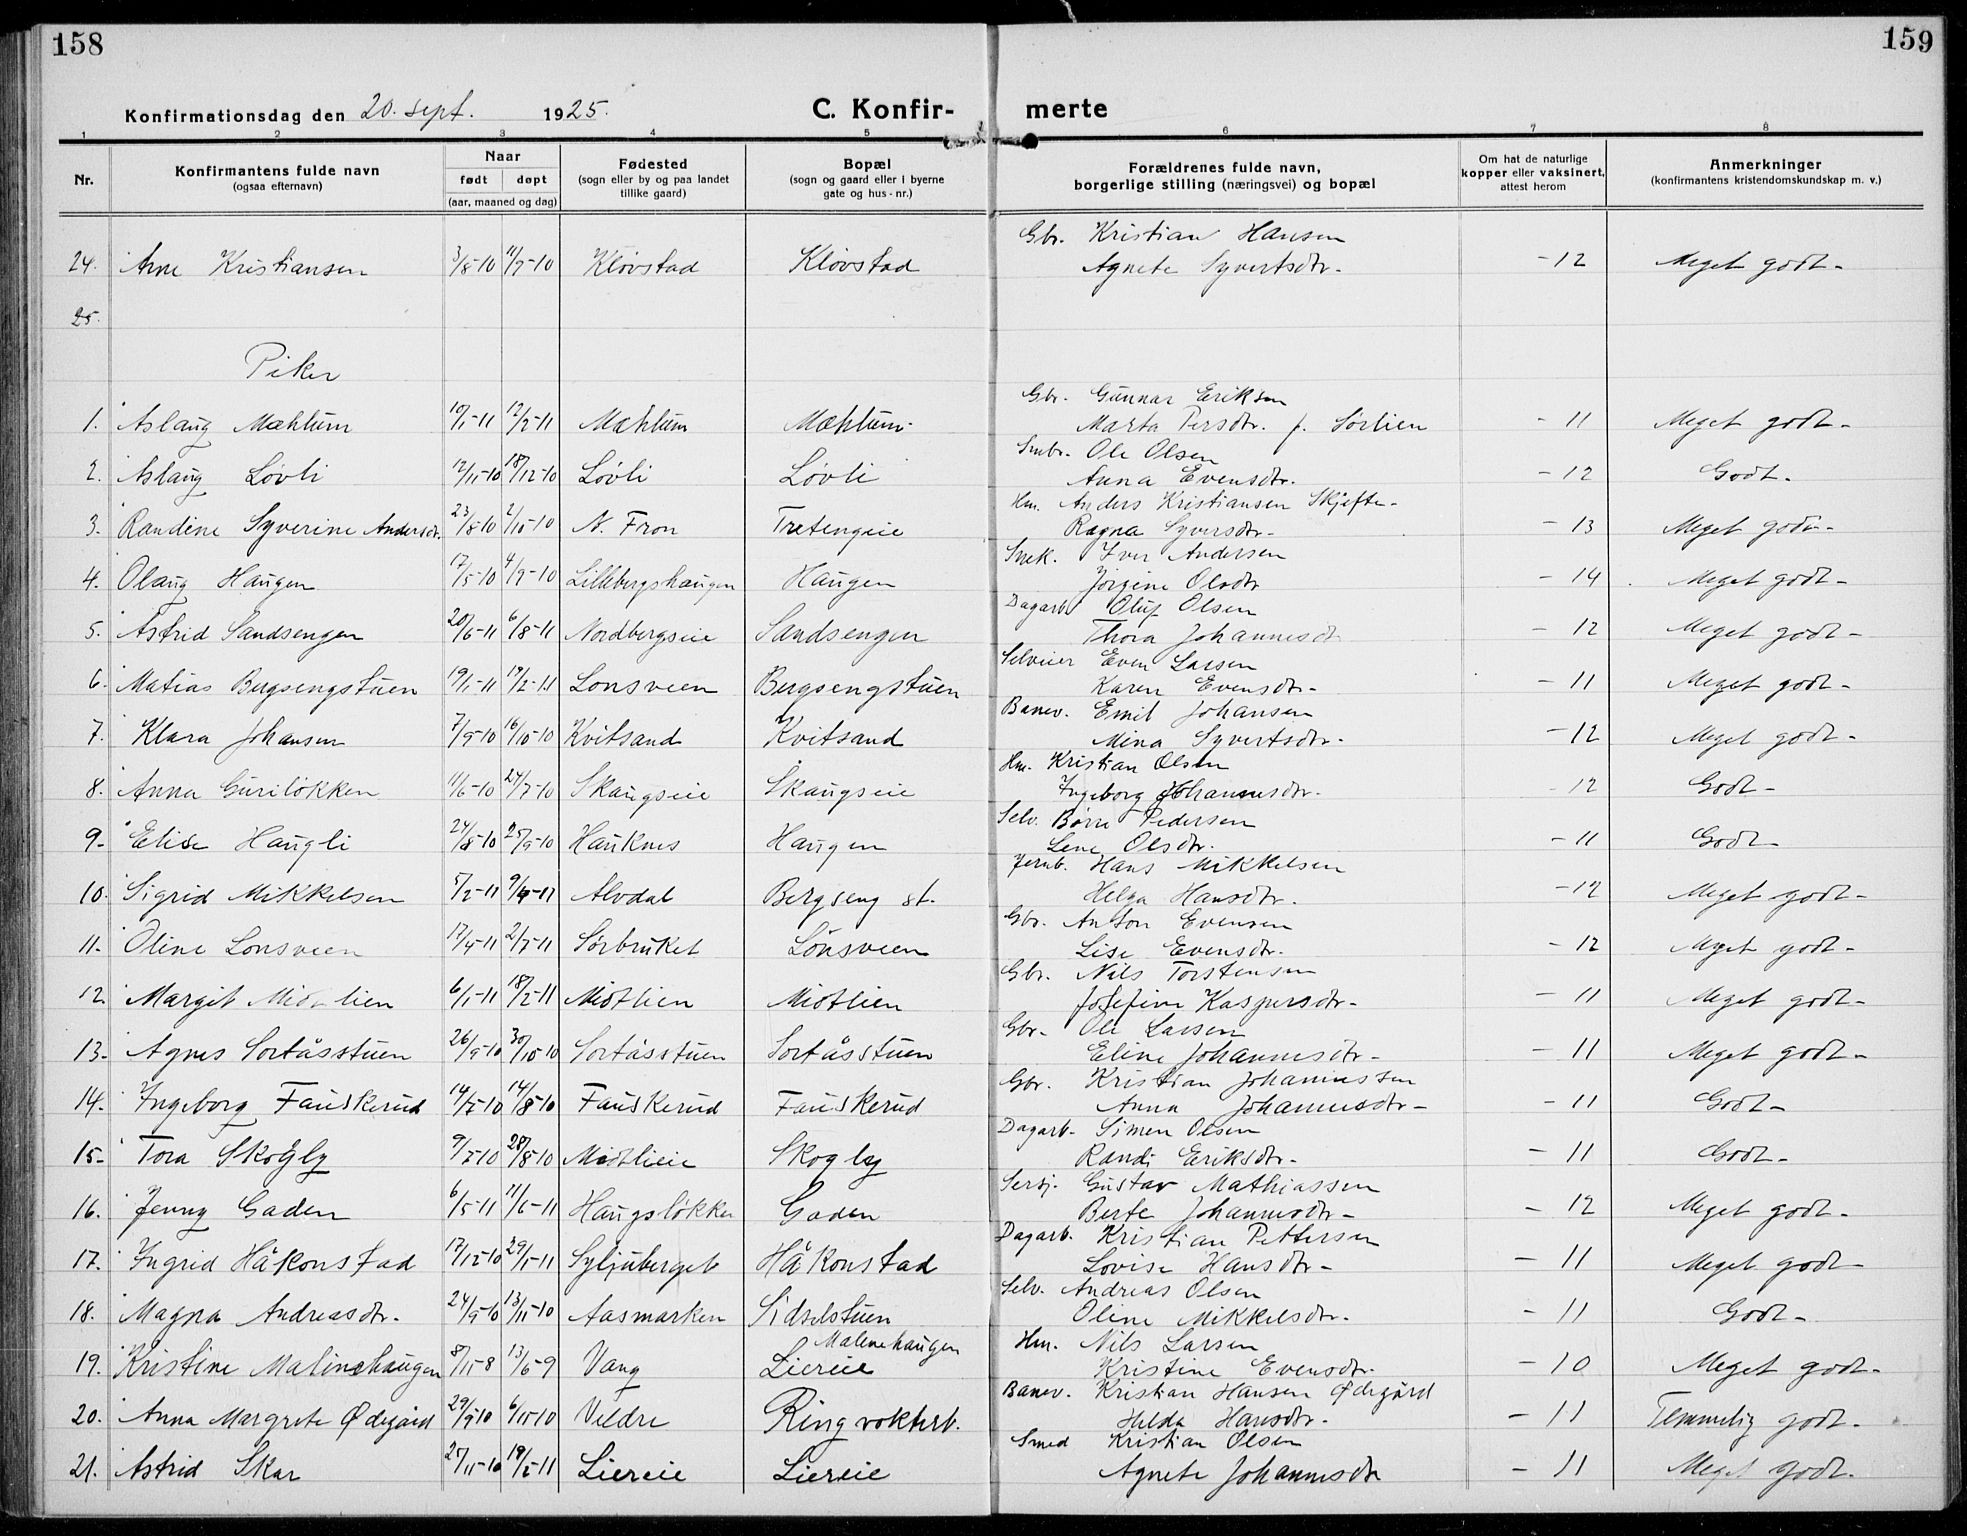 158
159
Konfirmationsdag den 20. sept. 1925.
C. Konfir-
merte
1 2 3 4 5 6 7 8
Nr.
Konfirmantens fulde navn
(ogsaa efternavn)
Naar
født døpt
(aar, maaned og dag)
Fødested
(sogn eller by og paa landet
tillike gaard)
Bopæl
(sogn og gaard eller i byerne
gate og hus-nr.)
Forældrenes fulde navn,
borgerlige stilling (næringsvei) og bopæl
Om hat de naturlige
kopper eller vaksinert,
attest herom
Anmerkninger
(konfirmantens kristendomskundskap m. v.)
Gbr. Kristian Hansen
24. Arne Kristiansen 3/8-10 11/9-10 Kløvstad Kløvstad Agnete Syvertsdtr. -12 Meget godt-
25.
Piker
Gbr. Gunnar Eriksen
1. Aslaug Mæhlum 10/1-11 12/2-11 Mæhlum Mæhlum Marta Persdtr. f. Sørlien -11 Meget godt-
Smbr. Ole Olsen
2. Aslaug Løvli 12/11-10 18/12-10 Løvli Løvli Anna Evensdtr. -12 Godt.
Hm. Anders Kristiansen Skjefte-
3. Randine Syverine Andersdtr. 23/8-10 2/10-10 N. Fron Tretengeie Ragna Syversdtr- -13 Meget godt-
Snek. Iver Andersen
4. Olaug Haugen 17/5-10 4/9-10 Lillebergshaugen Haugen Jørgine Olsdtr -14 Meget godt-
Dagarb. Oluf Olsen
5. Astrid Sandsengen 20/6-11 6/8-11 Nordbergseie Sandsengen Thora Johannesdt. -12 Meget godt-
Selveier Even Larsen
6. Matias Bergsengstuen 19/1-11 Lonsveen Bergsengstuen Karen Evensdtr- -11 Meget godt-
Banev. Emil Johansen
7. Klara Johansen 7/9-10 16/10-10 Kvitsand Kvitsand Mina Syvertsdtr- -12 Meget godt-
Hm. Kristian Olsen
8. Anna Guriløkken 11/6-10 24/7-10 Skaugseie Skaugseie Ingeborg Johannesdtr. -12 Godt-
Selv. Børre Pedersen
9. Elise Haugli 24/8-10 25/9-10 Hauknes Haugen Lene Olsdtr. -11 Godt
Jernb. Hans Mikkelsen
10. Sigrid Mikkelsen 5/2-11 9/4-11 Alvdal Bergseng st. Helga Hansdtr. -12 Meget godt-
Gbr. Anton Evensen
11. Oline Lonsveen 17/4-11 2/7-11 Sørbruket Lønsveen Lise Evensdtr. -12 Meget godt-
Gbr. Nils Torstensen
12. Margit Midtlien 6/1-11 18/2-11 Midtlien Midtlien Josefine Kaspersdtr- -11 Meget godt-
Gbr. Ole Larsen
13. Agnes Sortåsstuen 26/9-10 30/10-10 Sortåsstuen Sortåsstuen Eline Johannesdtr- -11 Meget godt-
Gbr. Kristian Johannessen
14. Ingeborg Fauskerud 14/7-10 14/8-10 Fauskerud Fauskerud Anna Johannesdtr- -11 Godt-
Dagarb. Simen Olsen
15. Tora Skogly 9/7-10 28/8-10 Midtlieie Skogly Randi Eriksdtr- -11 Godt-
Sersj. Gustav Mathiassen
16. Jenny Gaden 6/5-11 11/6-11 Haugsløkken Gaden Berte Johannesdtr- -12 Meget godt-
Dagarb. Kristian Pettersen
17. Ingrid Håkonstad 17/12-10 29/1-11 Syljuberget Håkonstad Lovise Hansdtr- -11 Meget godt-
Selv. Andreas Olsen
18. Magna Andreasdtr. 24/9-10 13/11-10 Aasmarken Sidselstuen Oline Mikkelsdtr. -11 Godt-
Malenehaugen Hm. Nils Larsen
19. Kristine Malinehaugen 8/11-8 13/6-9 Vang Liereie Kristine Evensdtr. -10 Meget godt-
Banev. Kristian Hansen Ødegård
20. Anna Margrete Ødegård 29/9-10 6/11-10 Veldre Ringvokterb. Hilda Hansdtr- -11 Temmelig godt-
Smed Kristian Olsen
21. Astrid Skar 25/11-10 Liereie Liereie Agnete Johannesdtr -11 Meget godt.